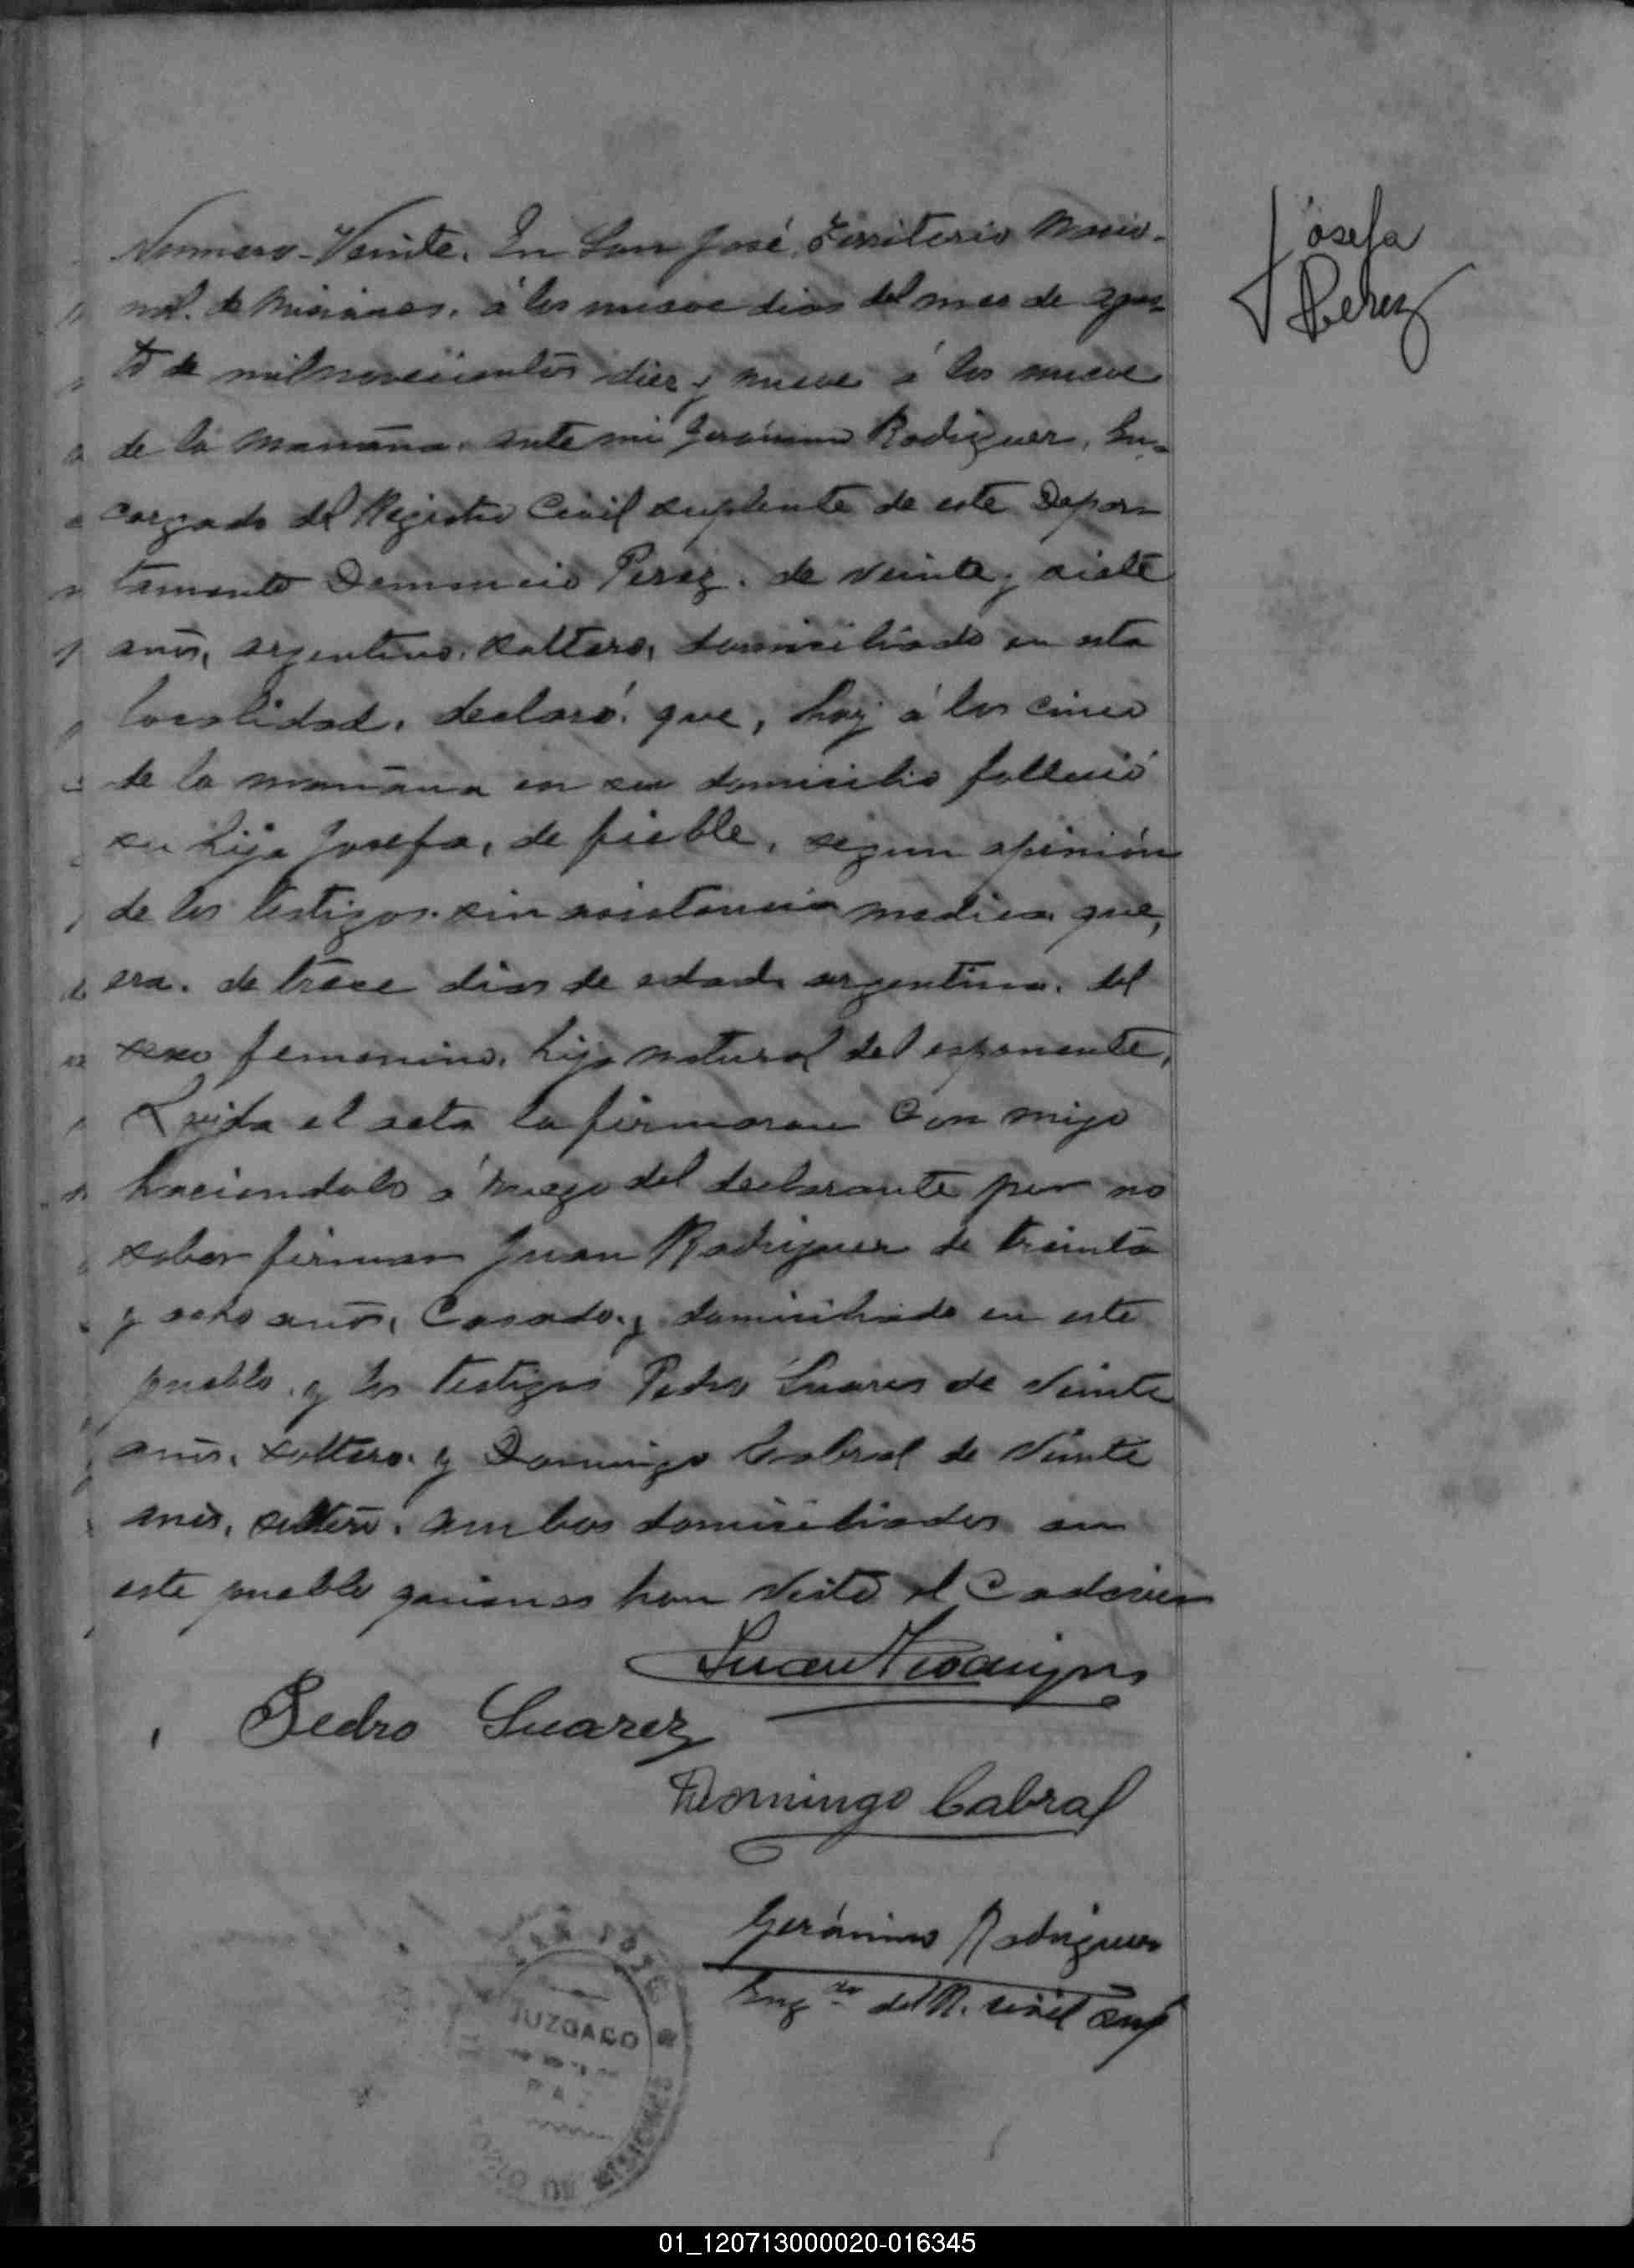 Josefa
Perez
Numero Veinte. En San José, Territorio Nacio-
nal. de Misiones, á los nueve dias del mes de agos-
to de milnovecientos diez y nueve á las nueve
de la mañana. ante mi Gerónimo Rodriguez, En-
cargado del Registro Civil suplente de este Depar-
tamento Perez. de veinte y siete
años, argentino, soltero, domiciliado en esta
localidad, declaró: que, hoy á las cinco
de la mañana en su domicilio falleció
su hija Josefa, de fieble, segun opinión
de los testigos. sin asistencia medica que,
era. de trece dias de edad, argentina. del
sexo femenino, hija natural del esponente,
Leida el acta la firmaron con migo
haciendolo á ruego del declarante por no
saber firmar Juan Rodriguez de treinta
y ocho años, Casado, y domiciliado en este
pueblo, y los testigos Pedro Suares de veinte
años, soltero. y Domingo Cabral de veinte
años, soltero. ambos domiciliados en
este pueblo quienes han visto el Cadaver
Juan Rodrigues
Pedro Suarez
Domingo Cabral
Gerónimo Rodriguez
Eng.do del R. civil Sup
SAN JOSE
JUZGADO
PAZ
MISIONES
01_120713000020-016345